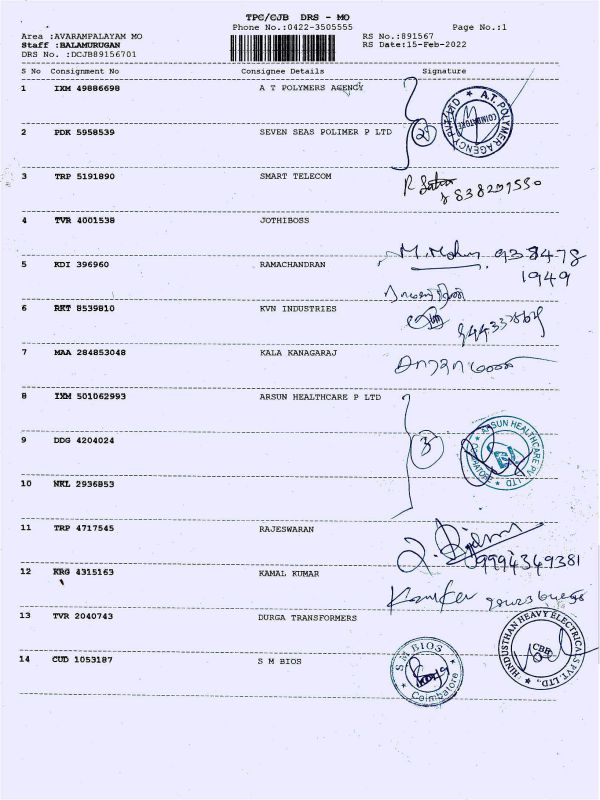 TPC/CJB DRS - MO
Phone No.:0422-3505555 Page No.:1
Area :AVARAMPALAYAM MO RS No.:891567
Staff :BALAMURUGAN RS Date:15-Feb-2022
DRS No. :DCJB89156701
S No Consignment No Consignee Details Signature
1 IXM 49886698 A T POLYMERS AGENCY
A.T. POLYMER AGENCY PVT LTD COIMBATORE
2 PDK 5958539 SEVEN SEAS POLIMER P LTD
3 TRP 5191890 SMART TELECOM
4 TVR 4001538 JOTHIBOSS
M. Mohan 938478
5 KDI 396960 RAMACHANDRAN 1949
6 RKT 8539810 KVN INDUSTRIES
7 MAA 284853048 KALA KANAGARAJ
8 IXM 501062993 ARSUN HEALTHCARE P LTD
9 DDG 4204024 3
ARSUN HEALTHCARE PVT. LTD
10 NKL 2936853
11 TRP 4717545 RAJESWARAN
9994349381
12 KRG 4315163 KAMAL KUMAR
13 TVR 2040743 DURGA TRANSFORMERS
HINDUSTHAN HEAVY ELECTRICALS PVT. LTD., CBE
14 CUD 1053187 S M BIOS
S M BIOS Coimbatore